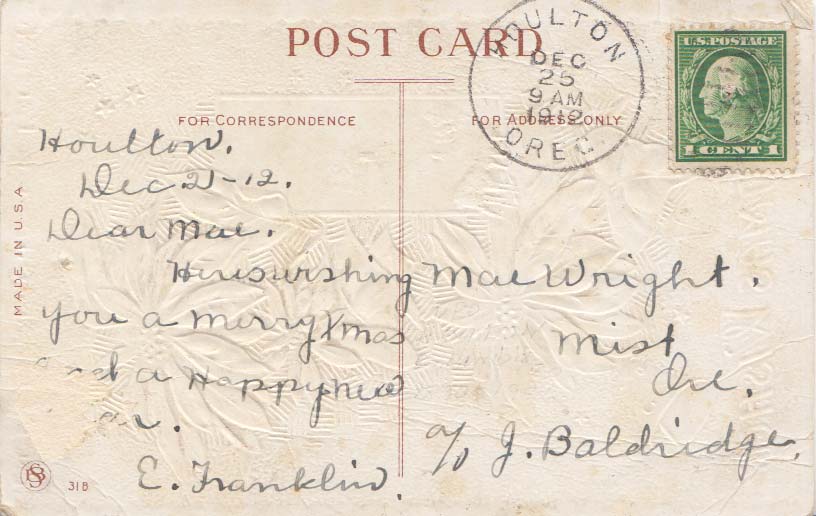 POST CARD
HOULTON
DEC
25
9 AM
1912
OREG.
U.S. POSTAGE
1 CENT 1
FOR CORRESPONDENCE
FOR ADDRESS ONLY
MADE IN U.S.A
Houlton.
Dec 21-12.
Dear Mae.
Heresurshing
you a Merry Xmas
a Happy New
E. Franklin.
Mae Wright.
Mist
Ore.
c/o J. Baldridge.
31B